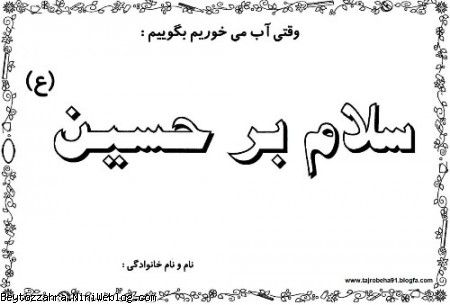 وقتی آب می خوریم بگوییم :
سلام بر حسین (ع)
نام و نام خانوادگی :
www.tajrobeha91.blogfa.com
Beytozzahra.NiniWeblog.com